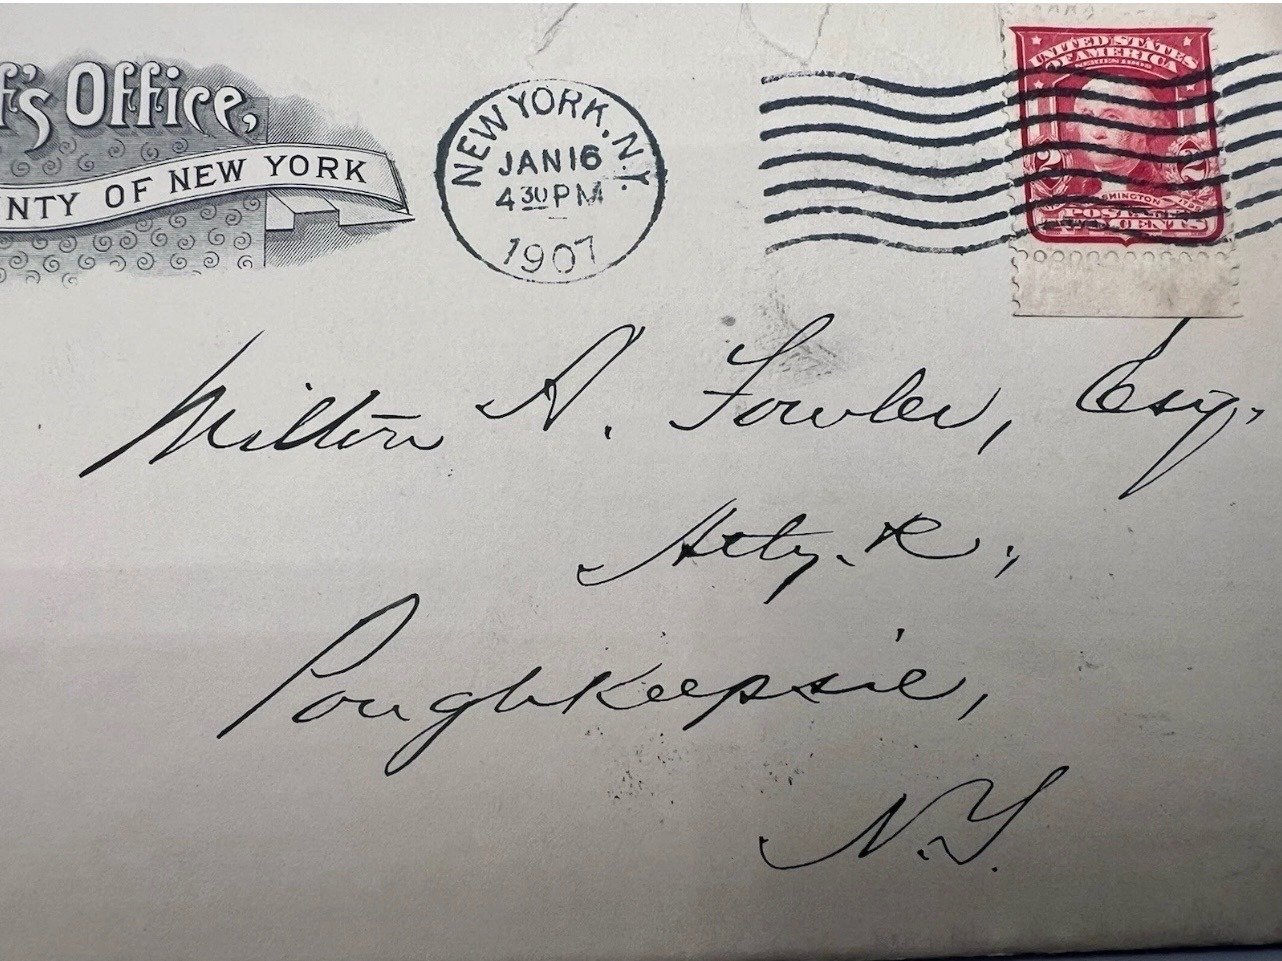 f's Office,
NTY OF NEW YORK
NEW YORK, N.Y.
JAN 16
4 30 PM
1907
UNITED STATES
OF AMERICA
SERIES 1902
2 2
WASHINGTON
POSTAGE
TWO CENTS
Milton A. Fowler, Esq.
Atty. &c.,
Poughkeepsie,
N.Y.